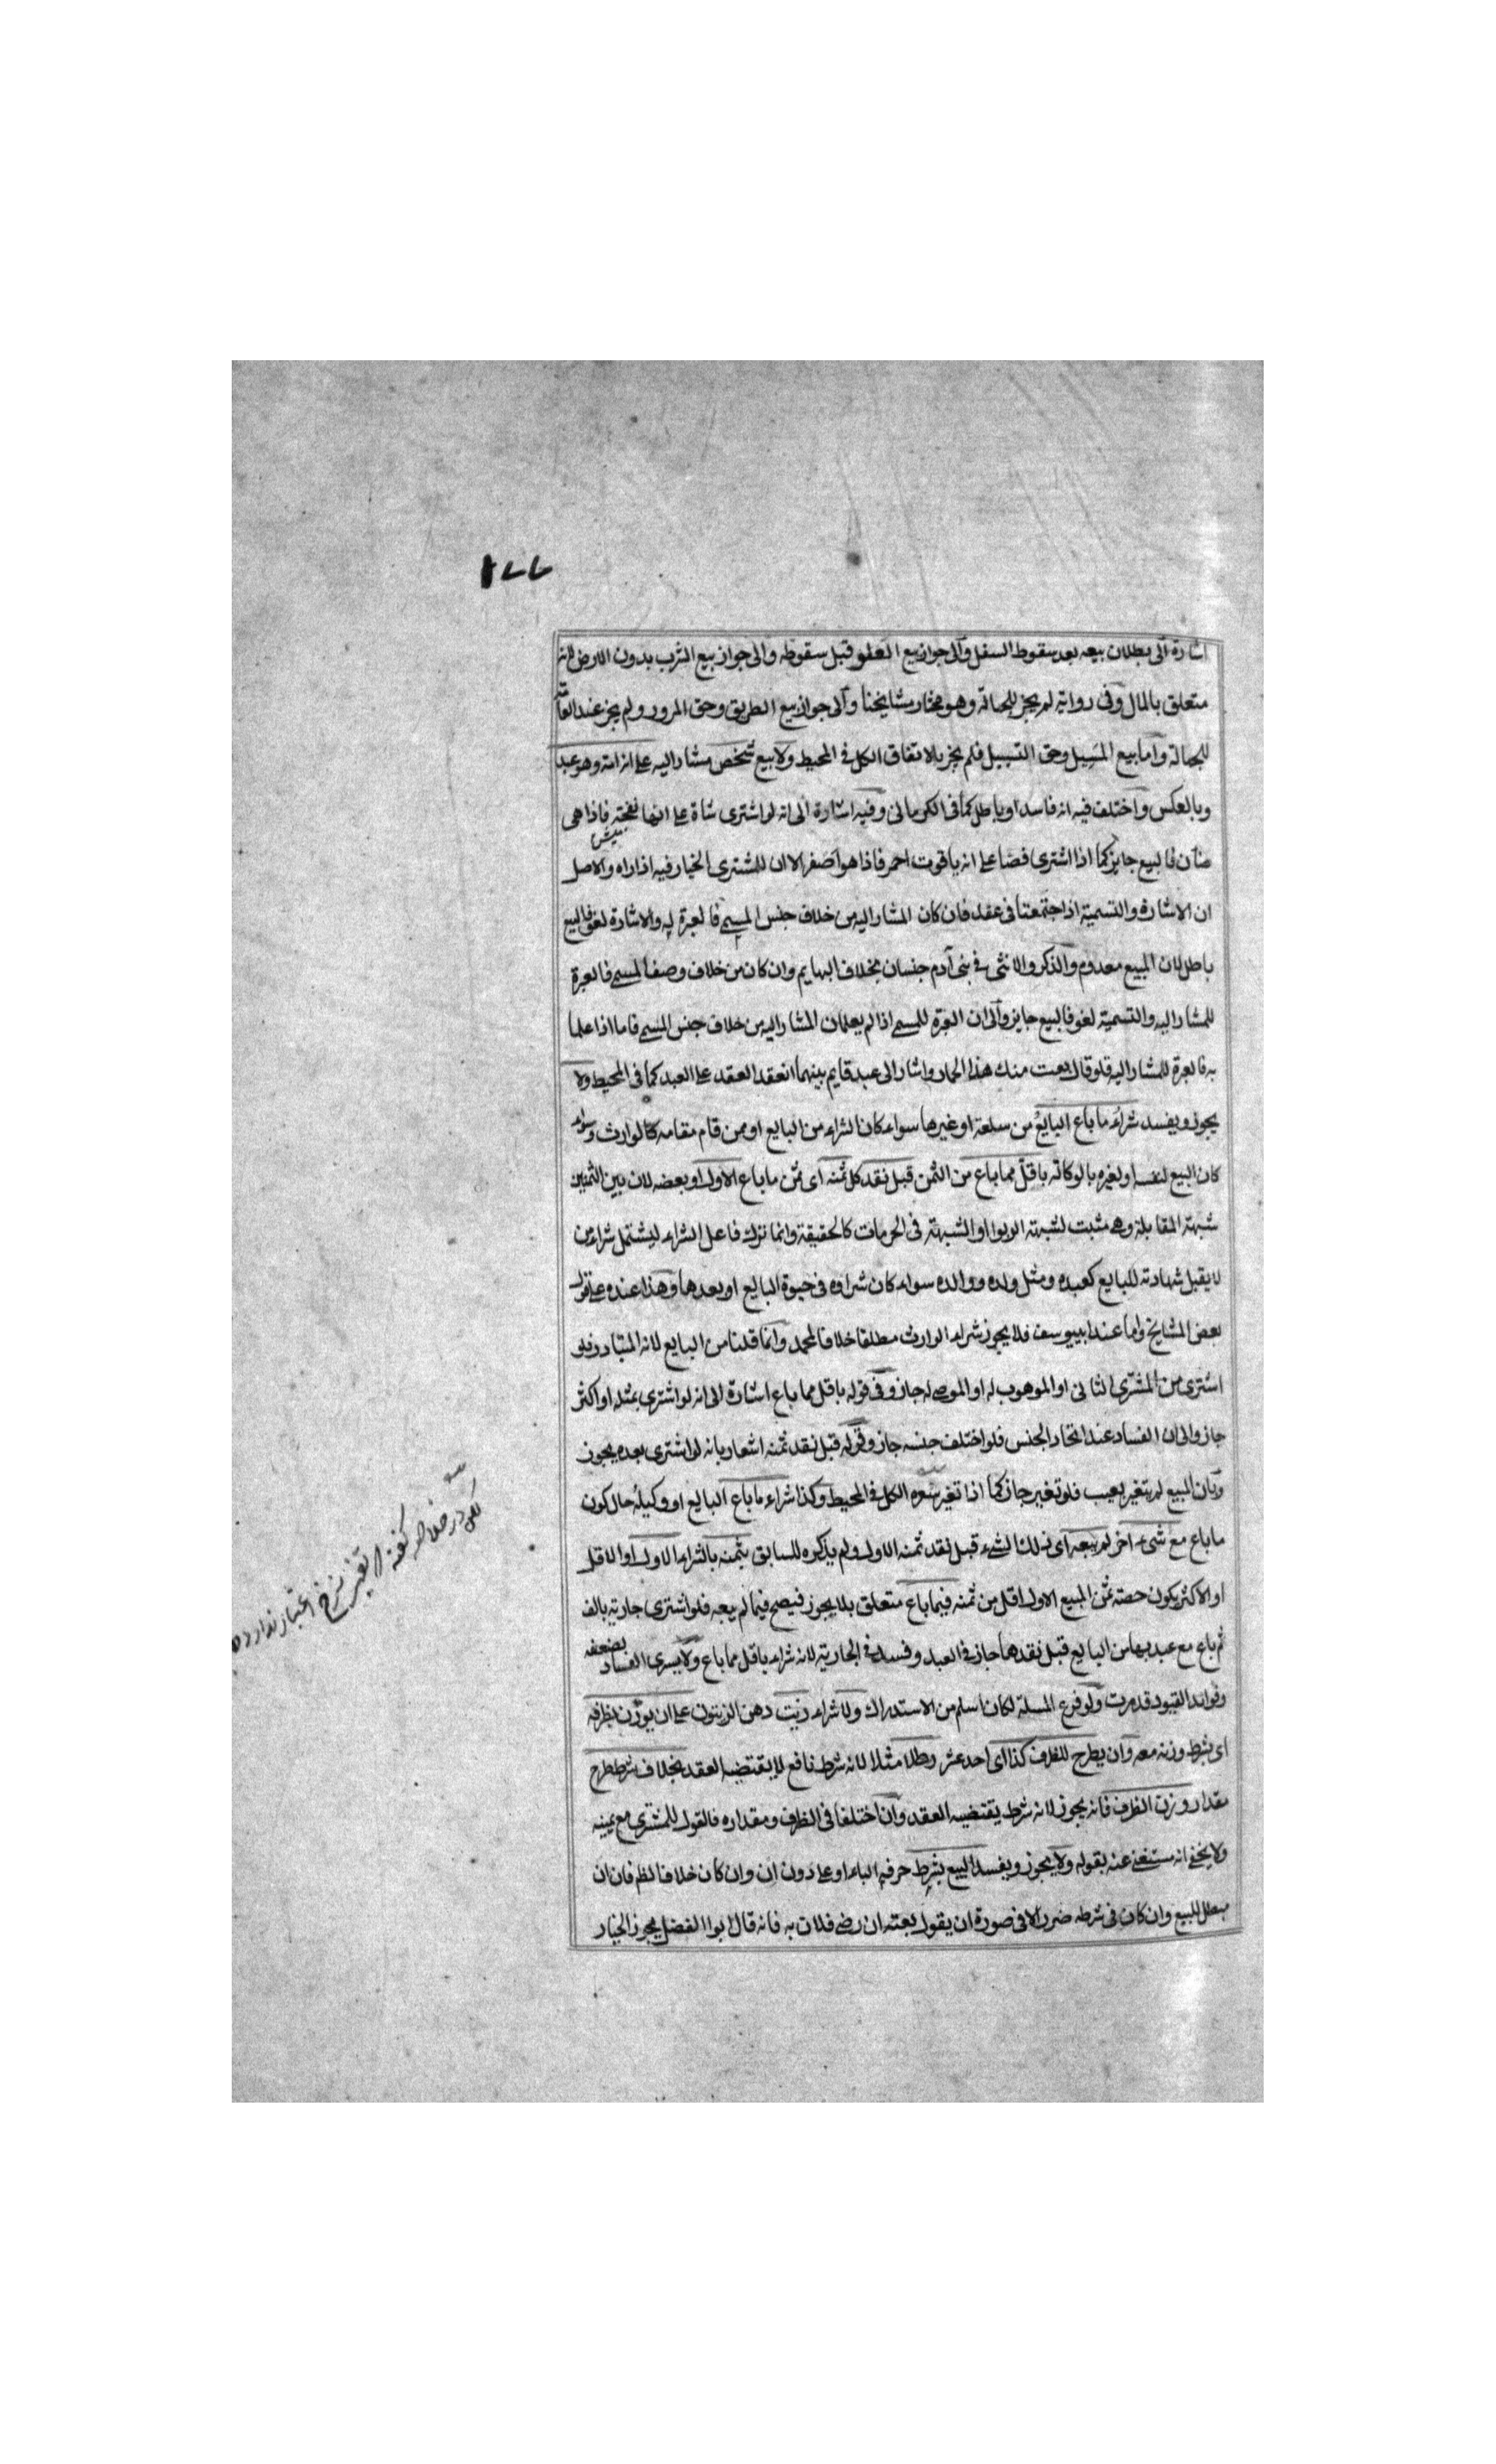 ١٧٧
اشارة الى بطلان بيعه بعد سقوط السفل والى جواز بيع العلو قبل سقوطه والى جواز بيع الشرب بدون الارض لانه
متعلق بالمال وفى رواية لم يجز للجهالة وهو مختار مشايخنا والى جواز بيع الطريق وحق المرور ولم يجز عند العامة
للجهالة واما بيع المسيل وحق التسييل فلم يجز بالاتفاق الكل فى المحيط ولا بيع شخص مشار اليه على انه امة وهو عبد
وبالعكس واختلف فيه انه فاسد او باطل كما فى الكرمانى وفيه اشارة الى انه لو اشترى شاة على انها نعجة فاذا هى
ميش
ضأن فالبيع جايز كما اذا اشترى فصا على انه ياقوت احمر فاذا هو اصفر الا ان للمشترى الخيار فيه اذا راه والاصل
ان الاشارة والتسمية اذا اجتمعتا فى عقد فان كان المشار اليه من خلاف جنس المسمى فالعبرة له والاشارة لغو فالبيع
باطل لان المبيع معدوم والذكر والانثى فى بنى آدم جنسان بخلاف البهايم وان كان من خلاف وصف المسمى فالعبرة
للمشار اليه والتسمية لغو فالبيع جايز والى ان العبرة للمسمى اذا لم يعلما ان المشار اليه من خلاف جنس المسمى فاما اذا علما
به فالعبرة للمشار اليه فلو قال بعت منك هذا الحمار واشار الى عبد قايم بينهما انعقد العقد على العبد كما فى المحيط ولا
يجوز ويفسد شراء ما باع البايع من سلعة او غيرها سواء كان الشراء من البايع او ممن قام مقامه كالوارث وسواء
كان البيع لنفسه او لغيره بالوكالة باقل مما باع من الثمن قبل نقد كل ثمنه اى ثمن ما باع الاول او بعضه لان بين الثمنين
شبهة المقابلة وهى مثبت لشبهة الربوا والشبهة فى الحرمات كالحقيقة وانما ترك فاعل الشراء ليشتمل شراء من
لا يقبل شهادته للبايع كعبده ومثل ولده ووالده سواء كان شراوه فى حيوة البايع او بعدها وهذا عنده على قول
بعض المشايخ واما عند ابييوسف فلا يجوز شراء الوارث مطلقا خلافا لمحمد وانما قلنا من البايع لانه المتبادر فلو
اشترى من المشترى الثانى او الموهوب له او الموصى له جاز وفى قوله باقل مما باع اشارة الى انه لو اشترى بمثله او اكثر
جاز والى ان الفساد عند اتحاد الجنس فلو اختلف جنسه جاز وفى قوله قبل نقد ثمنه اشعار بانه لو اشترى بعده يجوز
وبان المبيع لم يتغير بعيب فلو تغير جاز كما اذا تغير سعره الكل فى المحيط وكذا شراء ما باع البايع او وكيله حال كون
ما باع مع شىء اخر لم يبعه اى ذلك الشىء قبل نقد ثمنه الاول ولم يذكره للسابق بثمنه بالشراء الاول او الاقل
او الاكثر يكون حصته ثمن المبيع الاول اقل من ثمنه فيما باع متعلق بلا يجوز فيصح فيما لم يبعه فلو اشترى جارية بالف
ثم باع مع عبد بها من البايع قبل نقدها جاز فى العبد وفسد فى الجارية لانه شراء باقل مما باع ولا يسرى الفساد لضعفه
وفوائد القيود قد مرت ولو فرع المسئلة لكان اسلم من الاستدراك ولا شراء زيت دهن الزيتون على ان يوزن بظرفه
اى بشرط وزنه معه وان يطرح للظرف كذا اى احد عشر رطلا مثلا لانه شرط نافع لا يقتضيه العقد بخلاف شرط طرح
مقدار وزن الظرف فانه يجوز لانه شرط يقتضيه العقد وان اختلفا فى الظرف ومقداره فالقول للمشترى مع يمينه
ولا يخفى انه مستغنى عنه بقوله ولا يجوز ويفسد البيع بشرط حرفه الباء او على دون ان وان كان خلاف النظم فان ان
مبطل للبيع وان كان فى شرطه ضرر الا فى صورة ان يقول بعته ان رضى فلان به فانه قال ابوا الفضل يجوز الخيار
لكن در خلاصه كفته از تغيير نرخ اعتبار ندارد